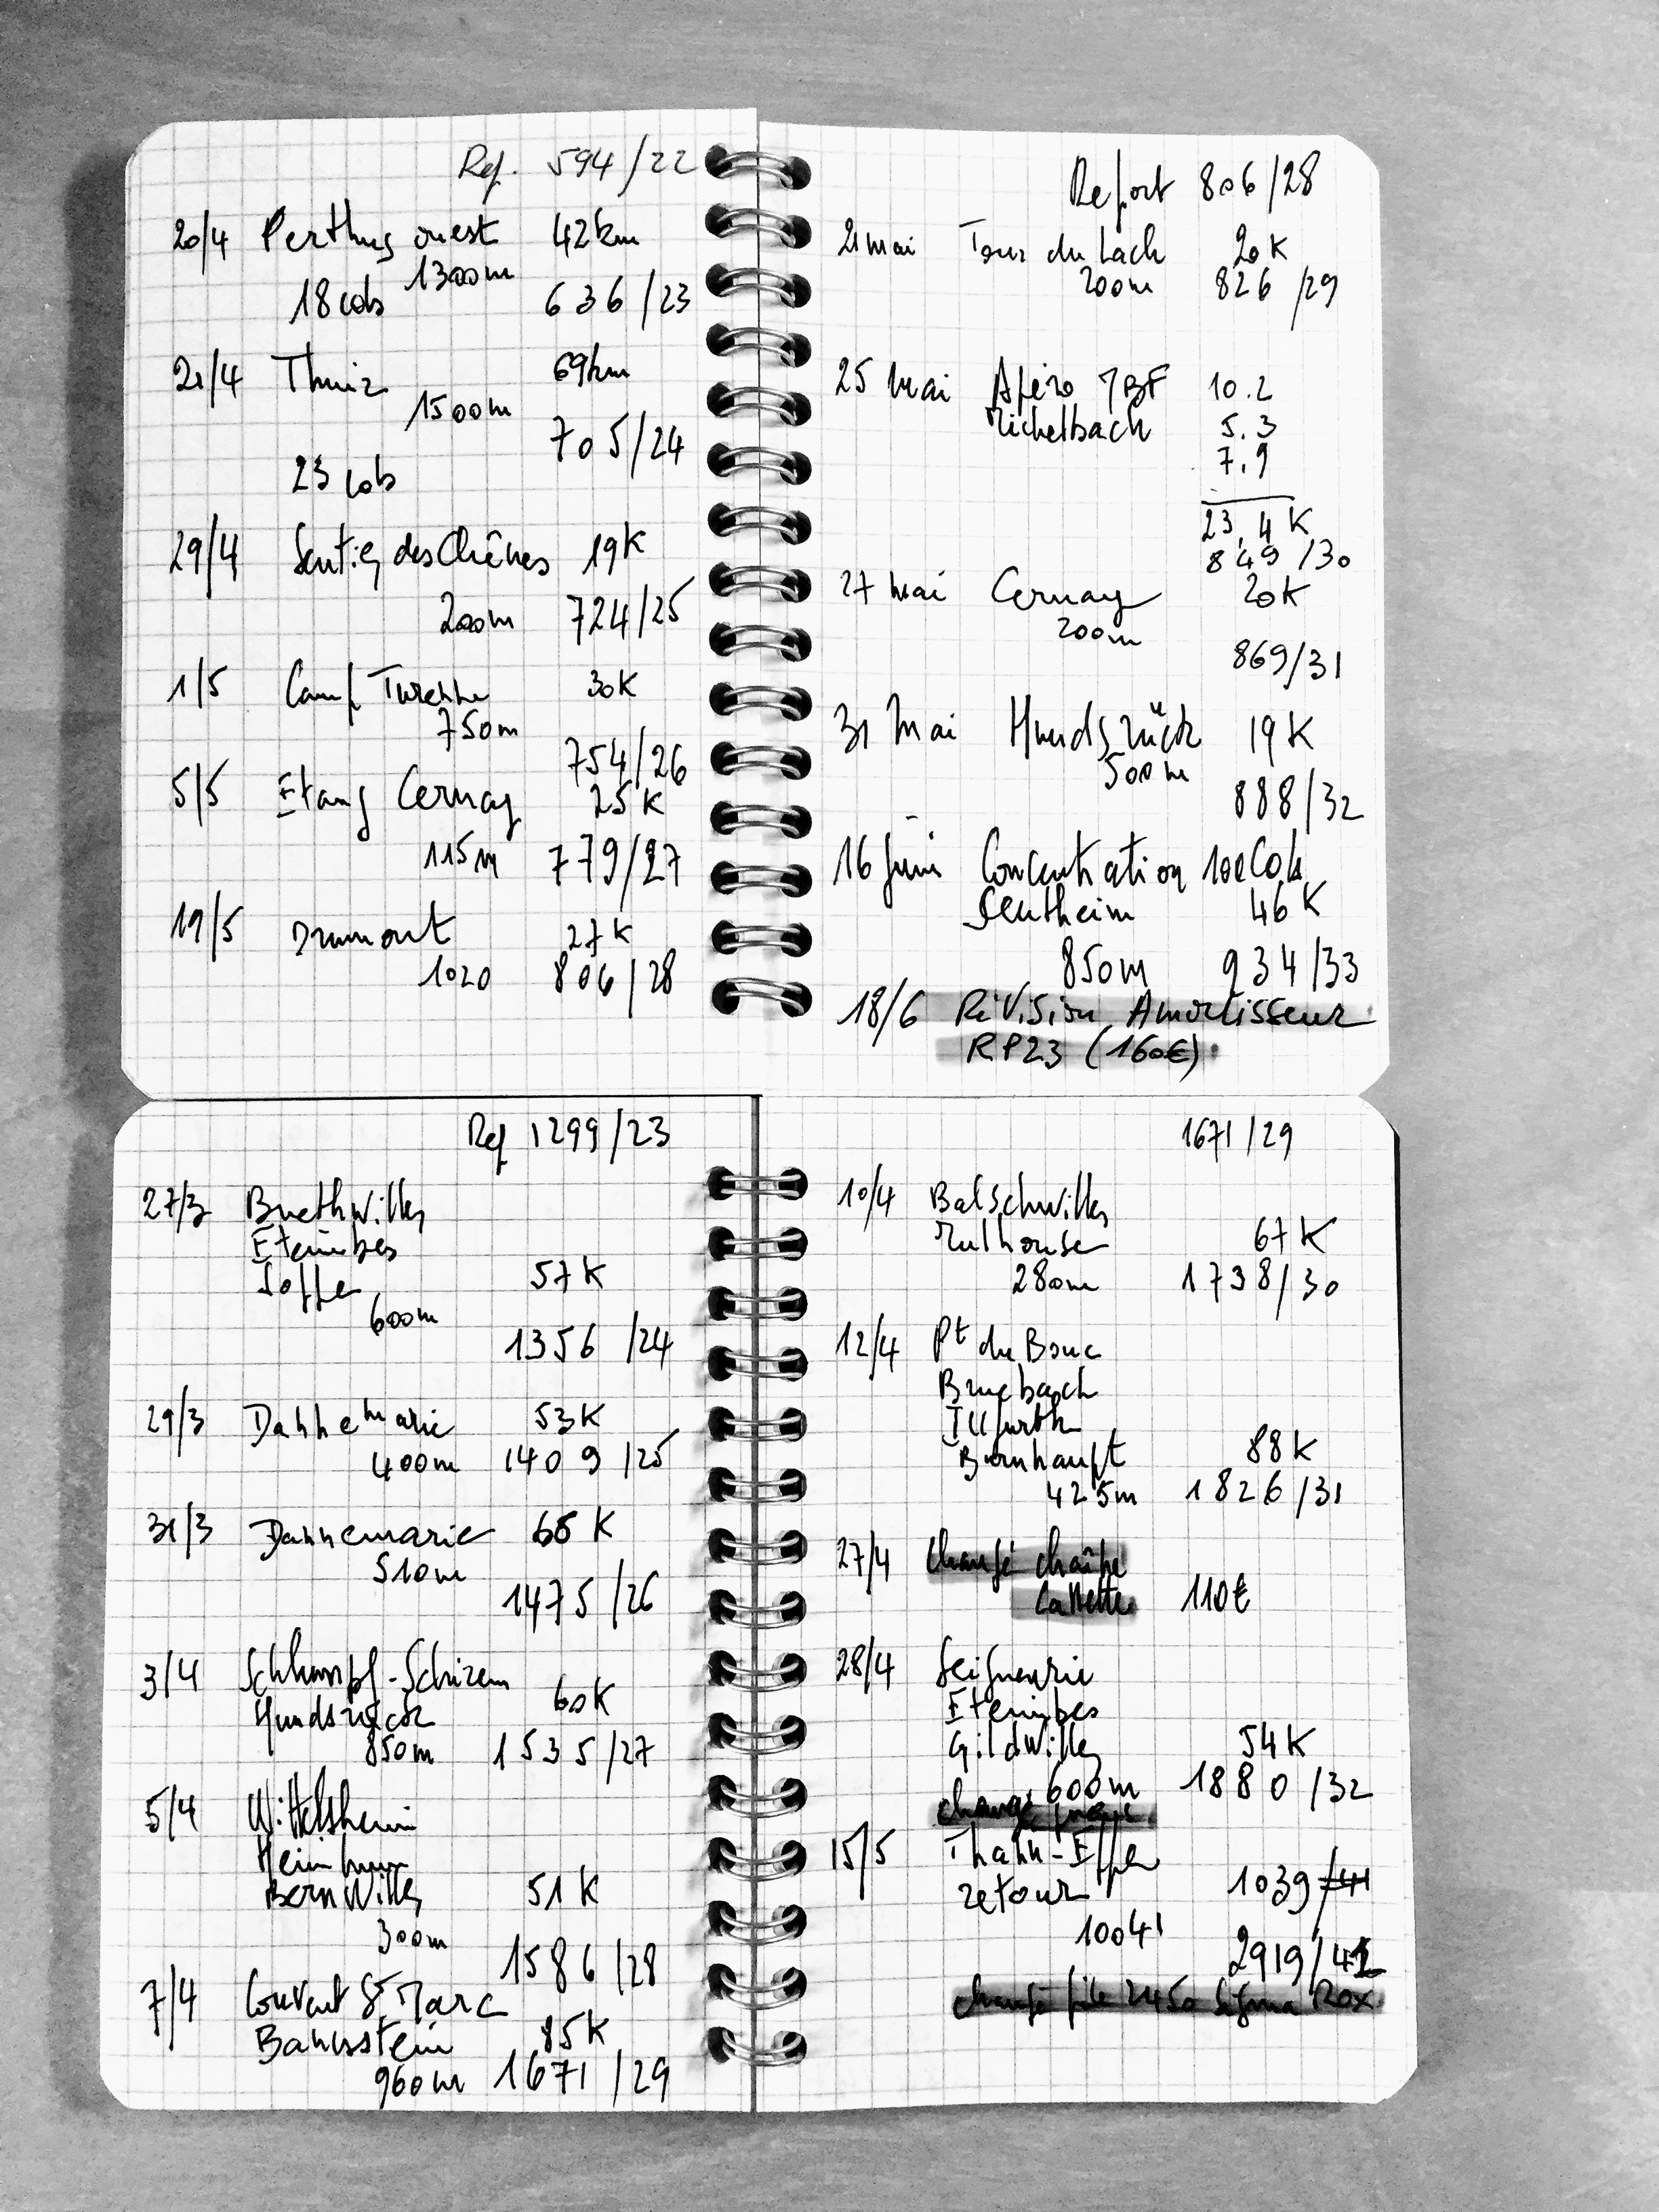 Rep. 594/22
20/4 Perthus ouest 42km
1300m
18 cols 636/23
21/4 Thuir 69km
1500m
705/24
23 cols
29/4 Sentier des Chênes 19K
200m 724/25
1/5 Camp Turenne 30K
750m
754/26
5/5 Etang Cernay 25K
115m 779/27
19/5 Drumont 27K
1020 806/28
Report 806/28
21 mai Tour du Lach 20K
200m 826/29
25 mai Apéro 7BF 10.2
Michelbach 5.3
7.9
23,4K
849/30
27 mai Cernay 20K
200m
869/31
31 Mai Hundsrück 19K
500m
888/32
16 Juin Concentration 100 Cols
Sentheim 46K
850m 934/33
18/6 Révision Amortisseur
RP23 (160€).
Rep 1299/23
27/3 Buethwiller
Eteimbes
Soppe 57K
600m
1356/24
29/3 Dannemarie 53K
400m 1409/25
31/3 Dannemarie 66K
510m
1475/26
3/4 Schlumpf-Schirm
Hundsrück 60K
850m 1535/27
5/4 Wittelsheim
Bernwiller 51K
300m 1586/28
7/4 Couvent St Marc
Bannstein 85K
960m 1671/29
1671/29
10/4 Balschwiller
Mulhouse 67K
280m 1738/30
12/4 Pt du Bouc
Bruebach
Illfurth
Burnhaupt 88K
425m 1826/31
27/4 Changé chaîne
Cassette 110€
28/4 Seigneurie
Eteimbes
Gildwiller 54K
600m 1880/32
changé
15/5 Thann-
retour 1039 /41
10041
2919/42
changé pile 2450 Sigma Rox